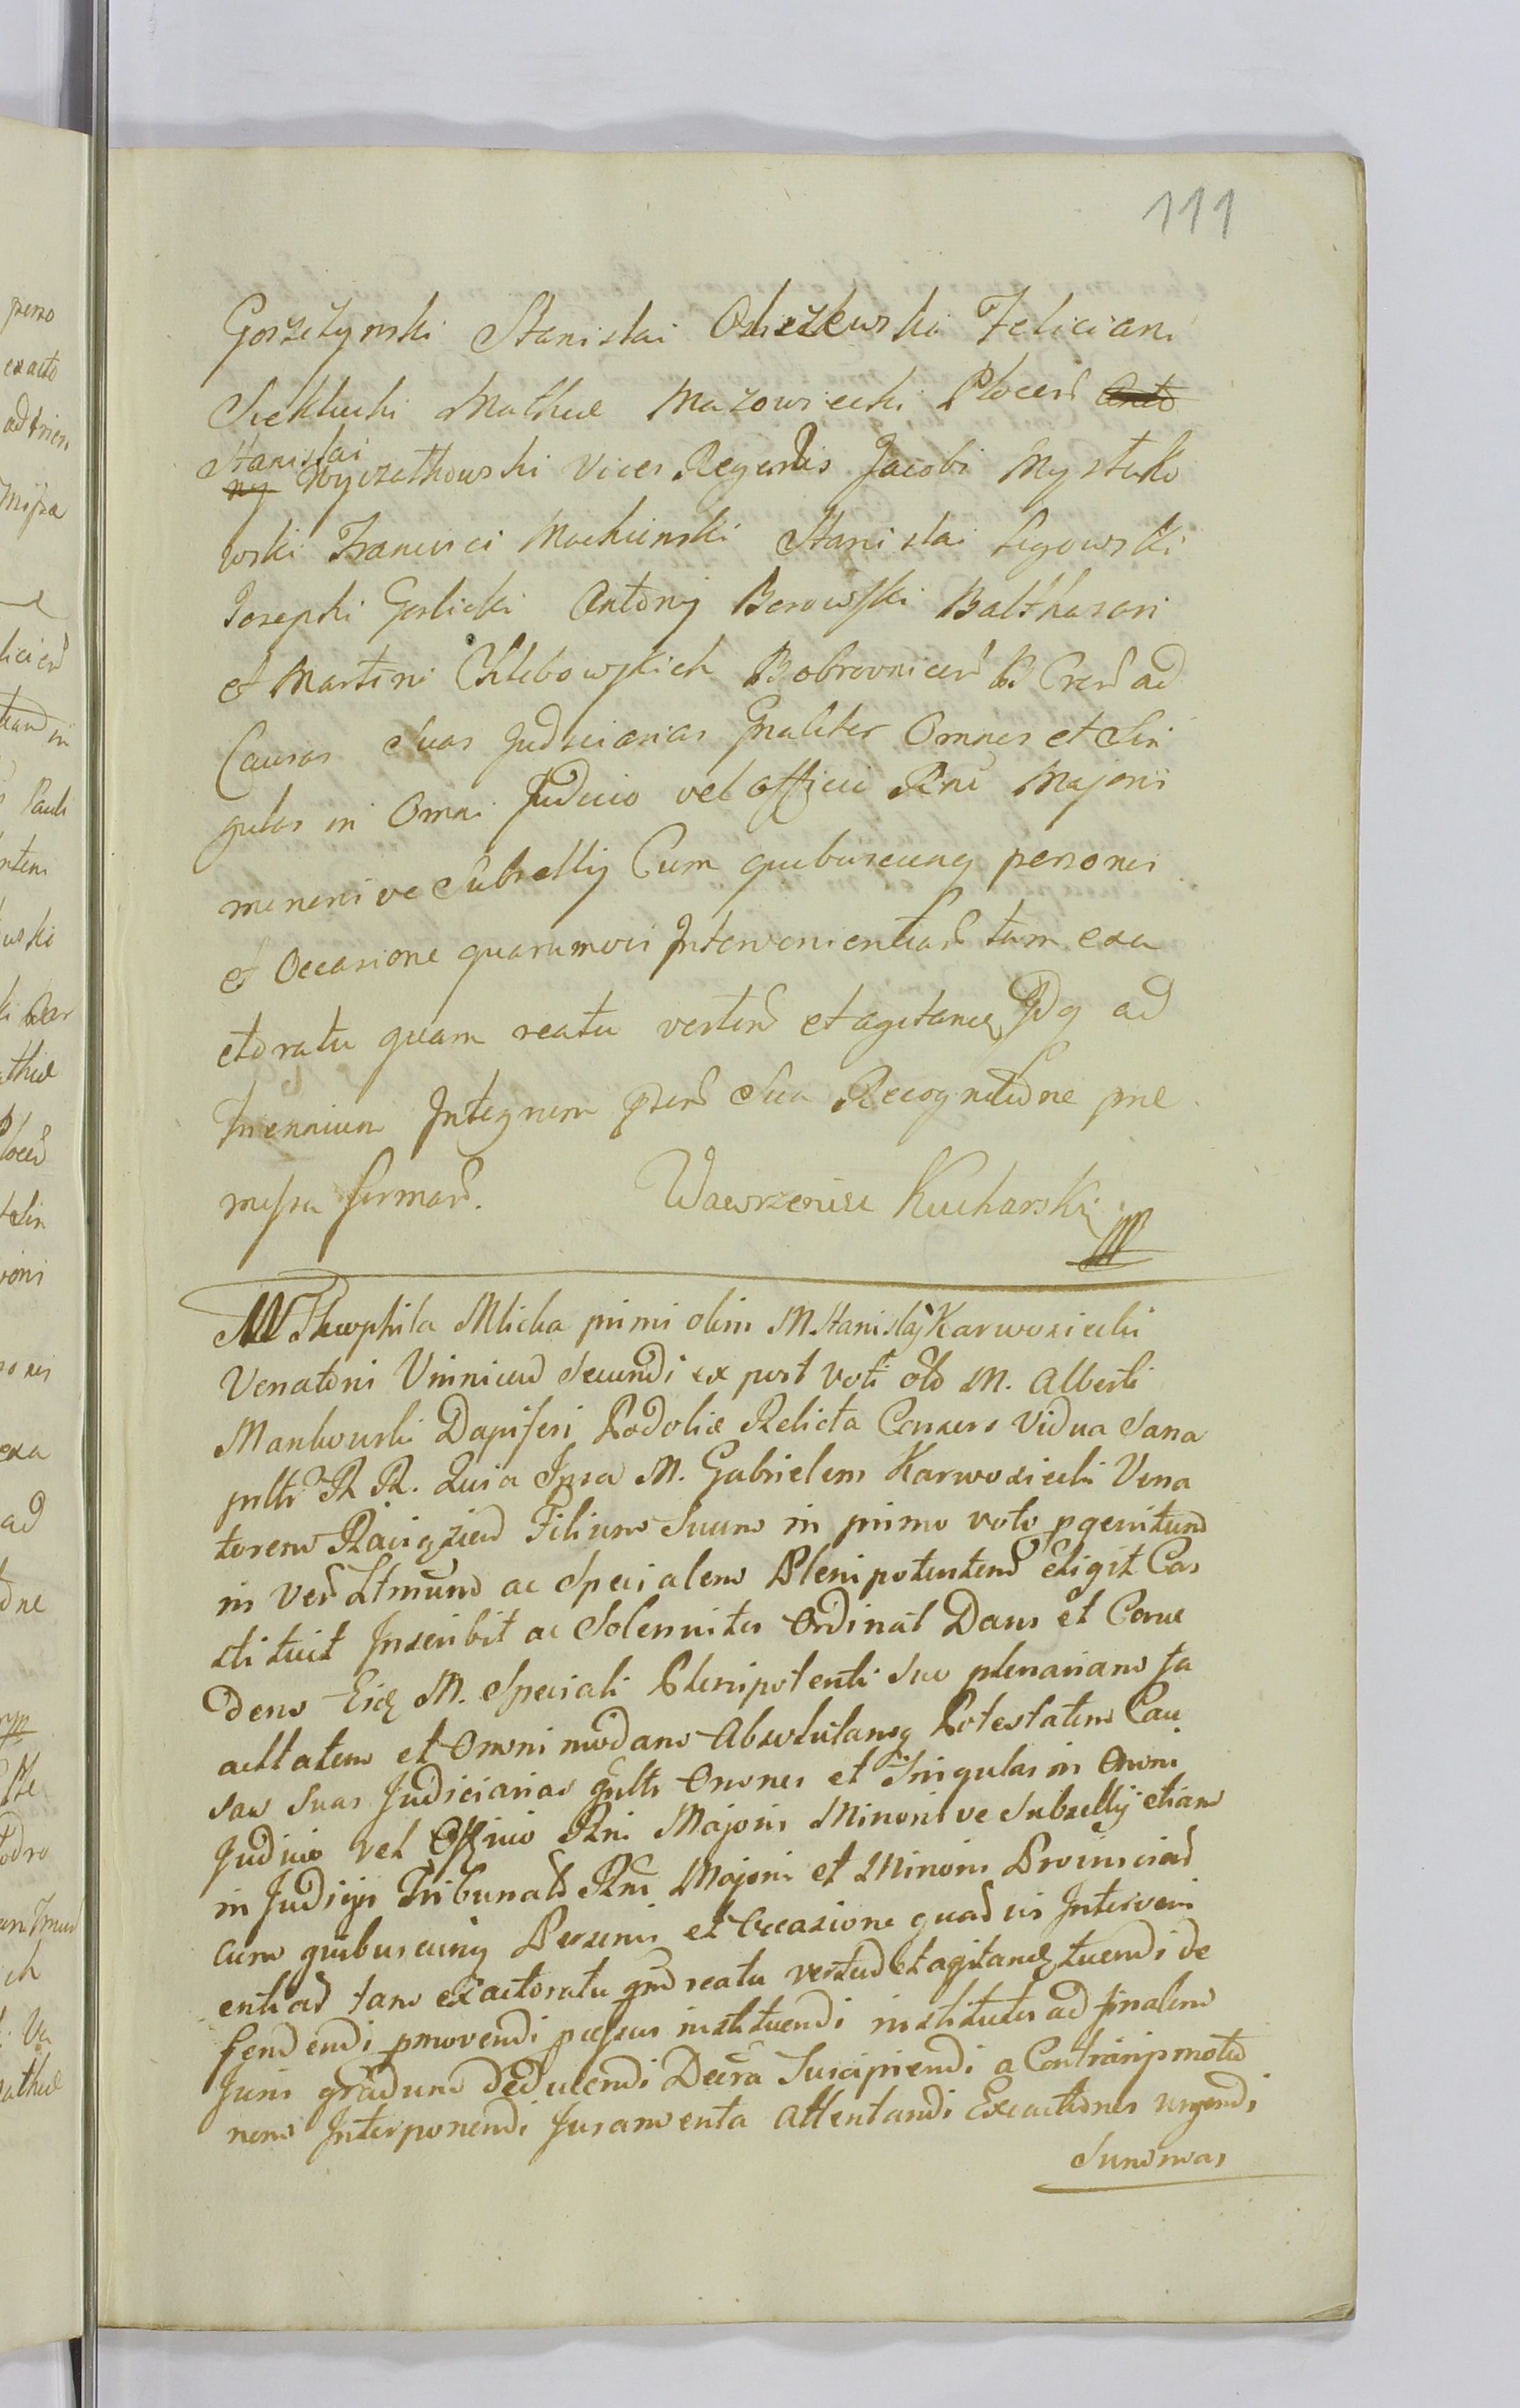 111
Gorzelynski Stanislai Olszewski Feliciani
Siekluchi Mathiae Mazowiecki Plocens̃ Anto
Stanislai
ny Wyczałkowski Vices Regentis Jacobi Mystko
wski Francisci Machcinski Stanislai Ligowski
Josephi Gorlicki Antonij Borowski Balthasari
et Martini Chlebowskich Bobrovnicen̄ B Cren̄ ad
Causas Suas Judiciarias Gnaliter Omnes et Sin
gulas in Omni Judicio vel officii Rni Majoris
minoris ve Subsellij Cum quibuscunq personis
et Occasione quarumvis Intervenientiar̃ tam exa
ctoratu quam reatu verten̄ et agitand Idq ad
Triennium Integrum pren̄ Sua Recognitione prae
missa firman̄. Wawrzeniec Kucharski
M Theophila Mlicka primi olim M. Stanislaj Karwosiecki
Venatoris Vinnicen̄ Secundi ex post voti olo M. Alberti
Mankowski Dapiferi Podoliae Relicta Consors Vidua Sana
pnltr R R. Quia Ipsa M. Gabrielem Karwosiecki Vena
torem Raciązien̄ Filium Suum in primo voto pgenitum
in Ver̃ Ltmum ac Specialem Plenipotentem eligit Con
stituit Inscribit ac Solenniter Ordinat Dans et Conce
dens Eid M. Speciali Plenipotenti Suo plenariam fa
cultatem et Omnimodam Absolutamq Potestatem Cau
sas Suas Judiciarias gnltr Omnes et Singulas in Omni
Judicio vel Officio Rni Majoris Minoris ve Subsellij etiam
in Judicijs Tribunal̃ Rni Majoris et Minoris Provinciar̃
cum quibuscunq Personis et Occasione quar̃vis Interveni
entiar̃ tam exactoratu qm reatu verten̄ et agitand tuendi de
fendendi pmovendi pcessus instituendi institutos ad finalem
Juris gradum deducendi Decra Suscipiendi a Contrarijs motio
nem Interponendi Juramenta Attentandi Exactiones urgendi
Summas